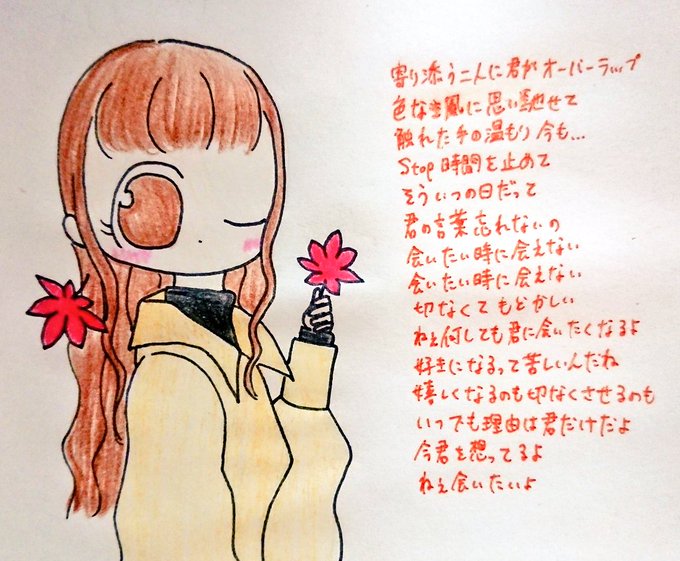 寄り添う二人に君がオーバーラップ
色な き風に思い馳せて
触れた手の温もり今も...
Stop 時間を止めて
そういつの日だって
君の言葉忘れないの
会いたい時に会えない
会いたい時に会えない
切なくてもどかしい
ねぇ何しても君に会いたくなるよ
好きになるって苦しいんだね
嬉しくなるのも切なくさせるのも
いつでも理由は君だけだよ
今君を想ってるよ
ねぇ会いたいよ